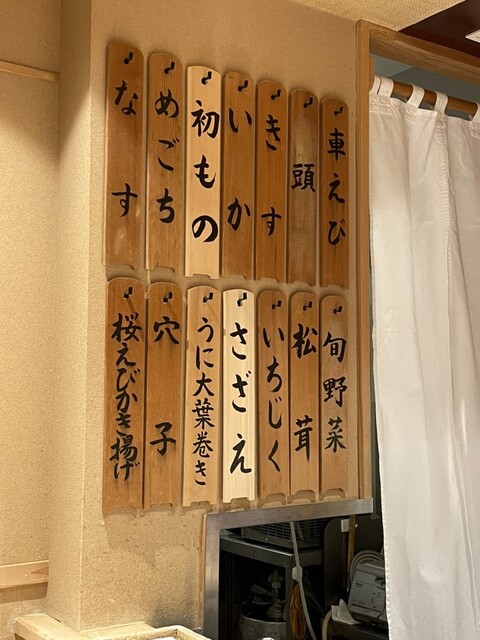 車えび
頭
きす
いか
初もの
めごち
なす
旬野菜
松茸
いちじく
さざえ
うに大葉巻き
穴子
桜えびかき揚げ